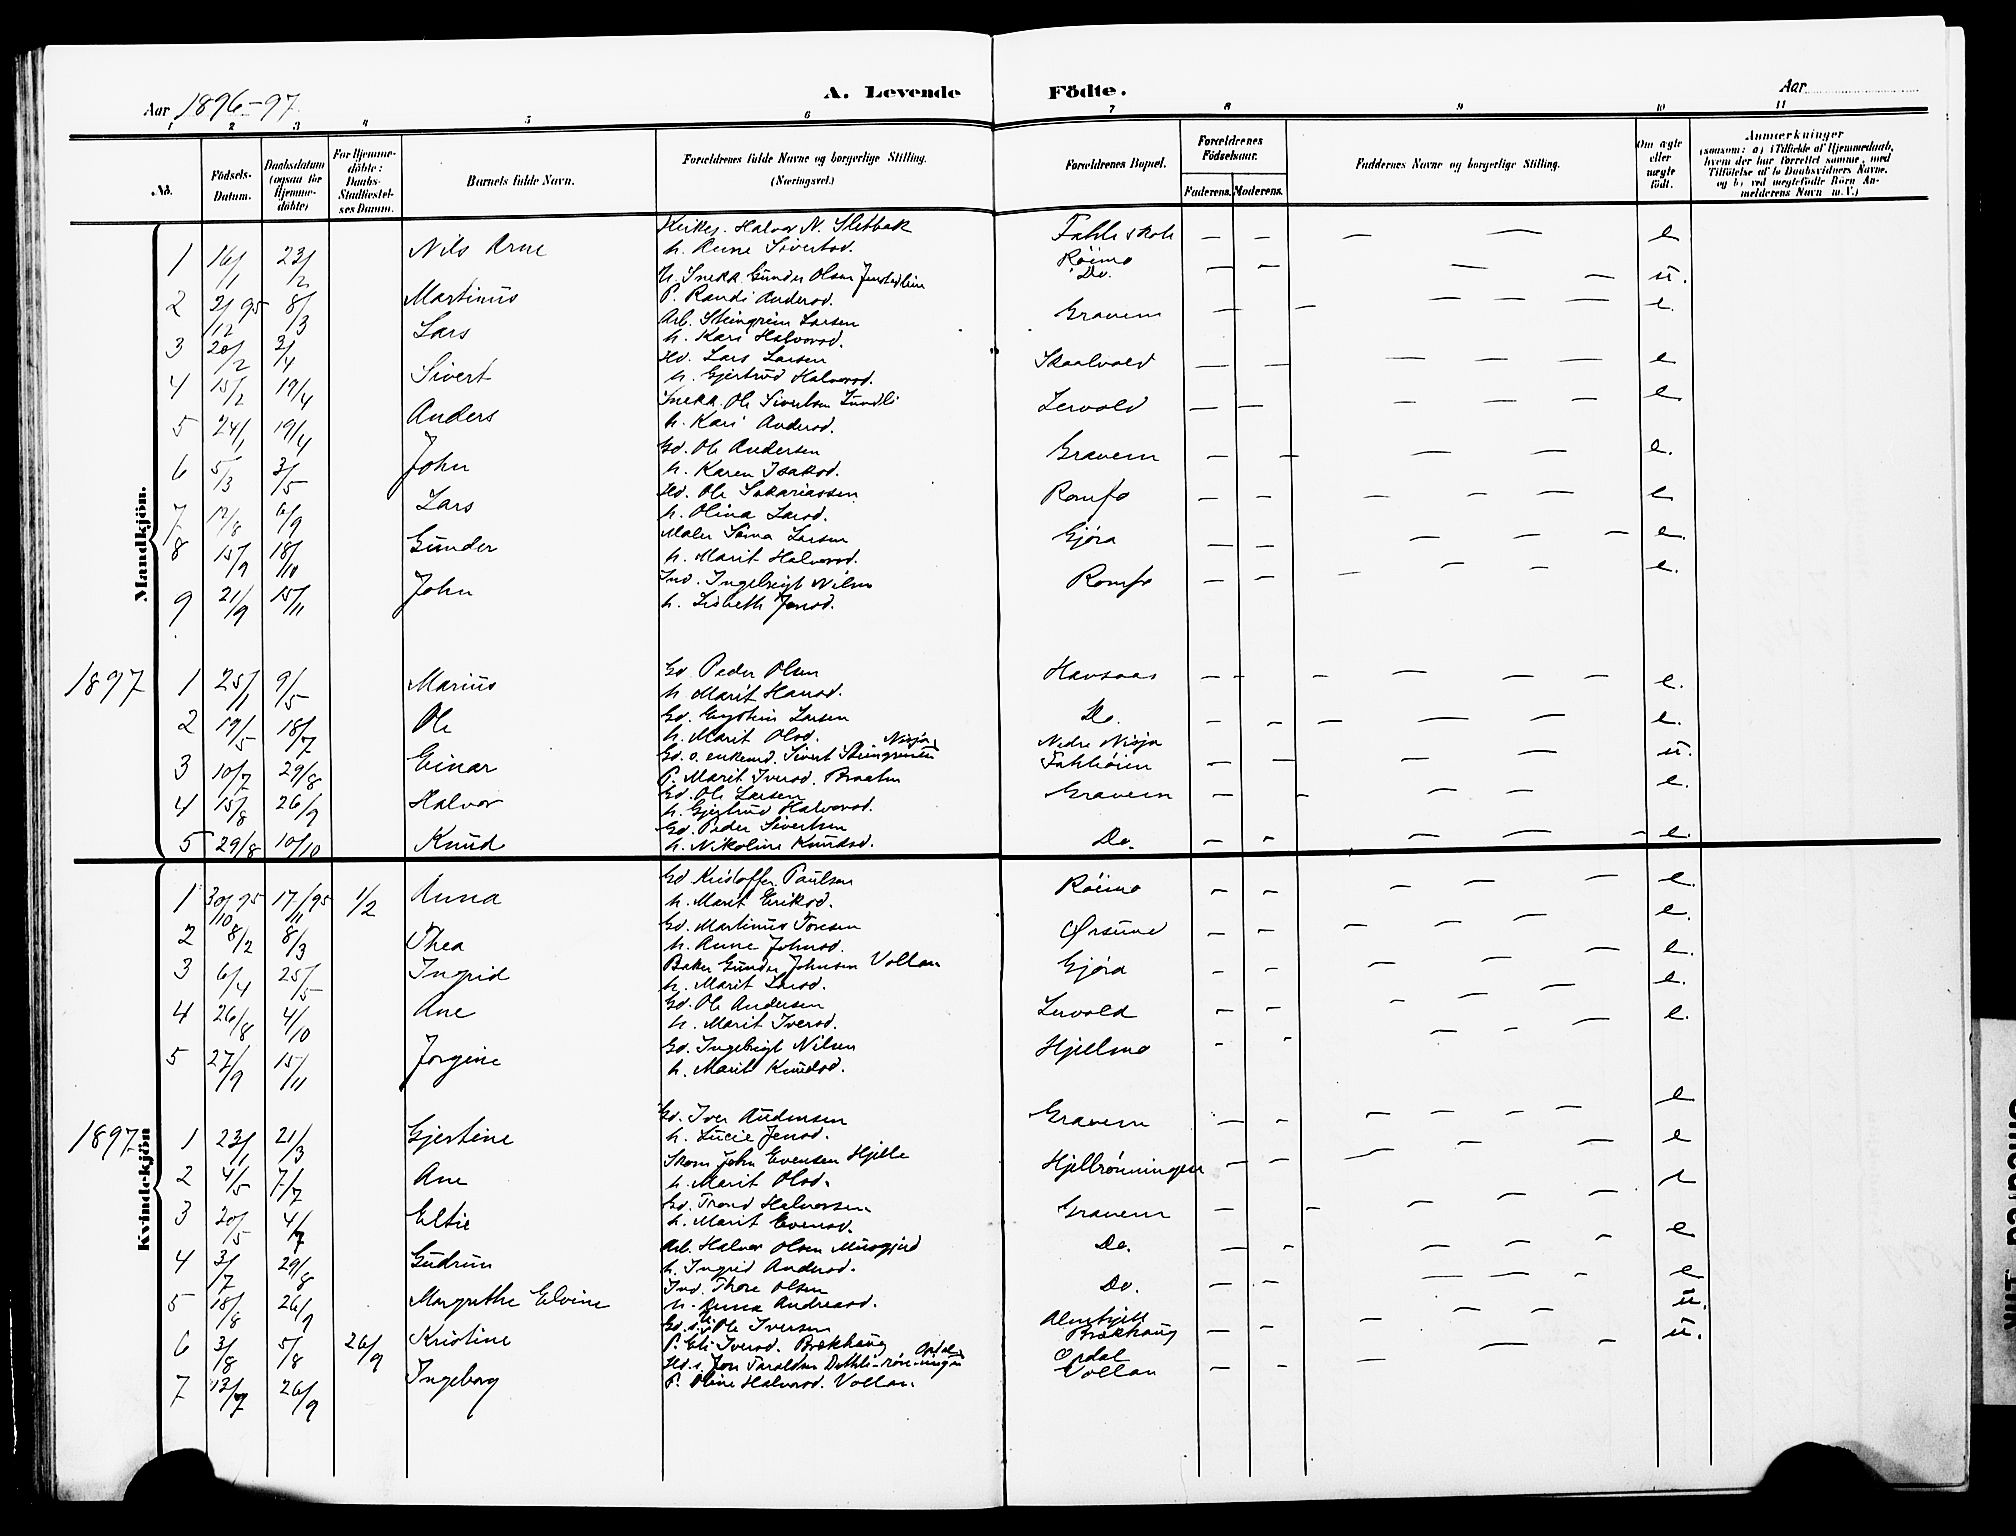 Aar 1896-97.
A. Levende Födte.
Aar
1 2 3 4 5 6 7 8 9 10 11
No.
Födsels-Datum.
Daabsdatum (ogsaa for Hjemme-döbte)
For Hjemme-döbte: Daabs-Stadfæstel-ses Datum.
Barnets fulde Navn.
Forældrenes fulde Navne og borgerlige Stilling. (Næringsvei.)
Forældrenes Bopæl.
Forældrenes Födselsaar.
Faderens. Moderens.
Faddernes Navne og borgerlige Stilling.
Om ægte eller uægte födt.
Anmærkninger
(saasom: a) i Tilfælde af Hjemmedaab, hvem der har forrettet samme, med Tilföielse af to Daabsvidners Navne, og b) ved uægtefödte Börn An-melderens Navn m. V.)
Mandkjön.
1 16/1 23/2 Nils Arne Kirkes. Halvor N. Sletbak Fahle skole — — — — e
h. Anne Sivertsd.
2 2/12 95 8/3 Martinus U. Snekk. Gunder Olsen Røimo — — — — u.
P. Randi Andersd. Do.
3 20/2 3/4 Lars Arb. Steingrim Larsen Gravem — — — — — e.
h. Kari Halvorsd.
4 15/2 19/4 Sivert Hd. Lars Larsen Skaalvold — — — — — e
h. Gjertrud Halvorsd.
5 24/1 19/4 Anders Snekk. Ole Sivertsen Lundli Lervold — — — — — e
h. Kari Andersd.
6 5/3 3/5 John Gd. Ole Andersen Gravem — — — — e.
h. Karen Isaksd.
7 17/8 6/9 Lars Hd. Ole Sakariassen Romfo — — — — — e
h. Olina Larsd.
8 15/9 18/10 Gunder Maler Larsen Gjøra — — — — — e.
h. Marit Halvorsd.
9 21/9 15/11 John Ind. Ingebrigt Nilsen Romfo — — — — — e.
h. Lisbeth Jensd.
1897 1 25/1 9/5 Marius Gd. Peder Olsen Havsaas — — — — — — e.
h. Marit Hansd.
2 19/5 18/7 Ole Gd. Eystein Larsen Do. — — — — — e.
h. Marit Olsd.
3 10/7 29/8 Einar Gd. s. enkemd. Sivert Steingrimsen Nisja Nedre Nisja — — — u.
P. Marit Iversd. Braaten Fahlhøien
4 15/8 26/9 Halvor Gd. Ole Larsen Gravem — — — — e.
h. Gjertrud Halvorsd.
5 29/8 10/10 Knud Gd. Peder Sivertsen Do. — — — — — e.
h. Nikoline Knudsd.
Kvindekjön
1 30/10 95 17/11 95 1/2 Anna Gd. Kristoffer Paulsen Røimo — — — — — e.
h. Marit Eriksd.
2 8/2 8/3 Thea Gd. Martinus Toresen Ørsund — — — — — e.
h. Anne Johnsd.
3 6/4 25/5 Ingrid Baker Gunder Johnsen Vollan Gjøra — — — — — e
h. Marit Larsd.
4 26/8 4/10 Ane Gd. Ole Andersen Lervold — — — — — e.
h. Marit Iversd.
5 27/9 15/11 Jorgine Gd. Ingebrigt Nilsen Hjellmo — — — — — e.
h. Marit Knudsd.
1897 1 23/1 21/3 Gjertine Gd. Iver Andersen Gravem — — — — — — e
h. Lucie Jensd.
2 4/5 7/7 Ane Skom. John Evensen Hjelle Hjellrønningen — — — — — e
h. Marit Olsd.
3 20/5 4/7 Eltie Gd. Trond Halvorsen Gravem — — — — — e
h. Marit Evensd.
4 3/7 29/8 Gudrun Arb. Halvor Olsen Musgjerd Do. — — — — — e
h. Ingrid Andersd.
5 18/8 26/9 Margrethe Elvine Ind. Thore Olsen Do. — — — — — e
h. Anna Andreasd.
6 3/8 5/8 26/9 Kristine Gd. s. Ole Iversen — — — — — u.
P. Eli Iversd. Brækhaug Brækhaug
7 13/7 26/9 Ingeborg Hd. s. Jon Taraldsen Opdal — — — — — u.
P. Oline Halvorsd. Vollan. Vollan